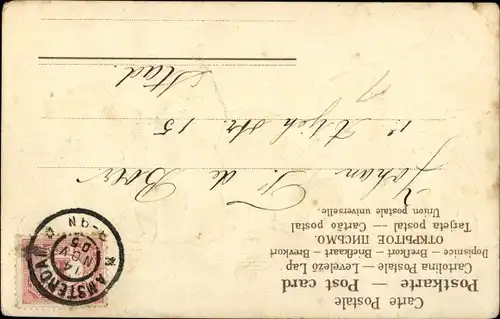 Carte Postale
Postkarte — Post card
Cartolina Postale — Levelező Lap
Dopisnice — Brefkort — Briefkaart — Brevkort
ОТКРЫТОЕ ПИСЬМО.
Tarjeta postal — Cartão postal
Union postale universelle.
AMSTERDAM
14 NOV 05
8-9N
Johan F. de Boer
15
Stad.